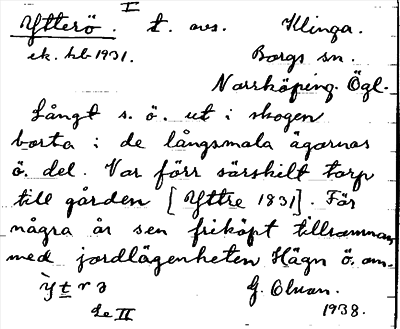 I
Ytterö. t. avs. Klinga.
ek. kb 1931. Borgs sn.
Norrköping. Ögl.
Långt s. ö. ut i skogen
borta i de långsmala ägornas
ö. del. Var förr särskilt torp
till gården [Yttre 1831]. För
några år sen friköpt tillsamman
med jordlägenheten Hägn ö. om.
G. Olson.
Se II 1938.